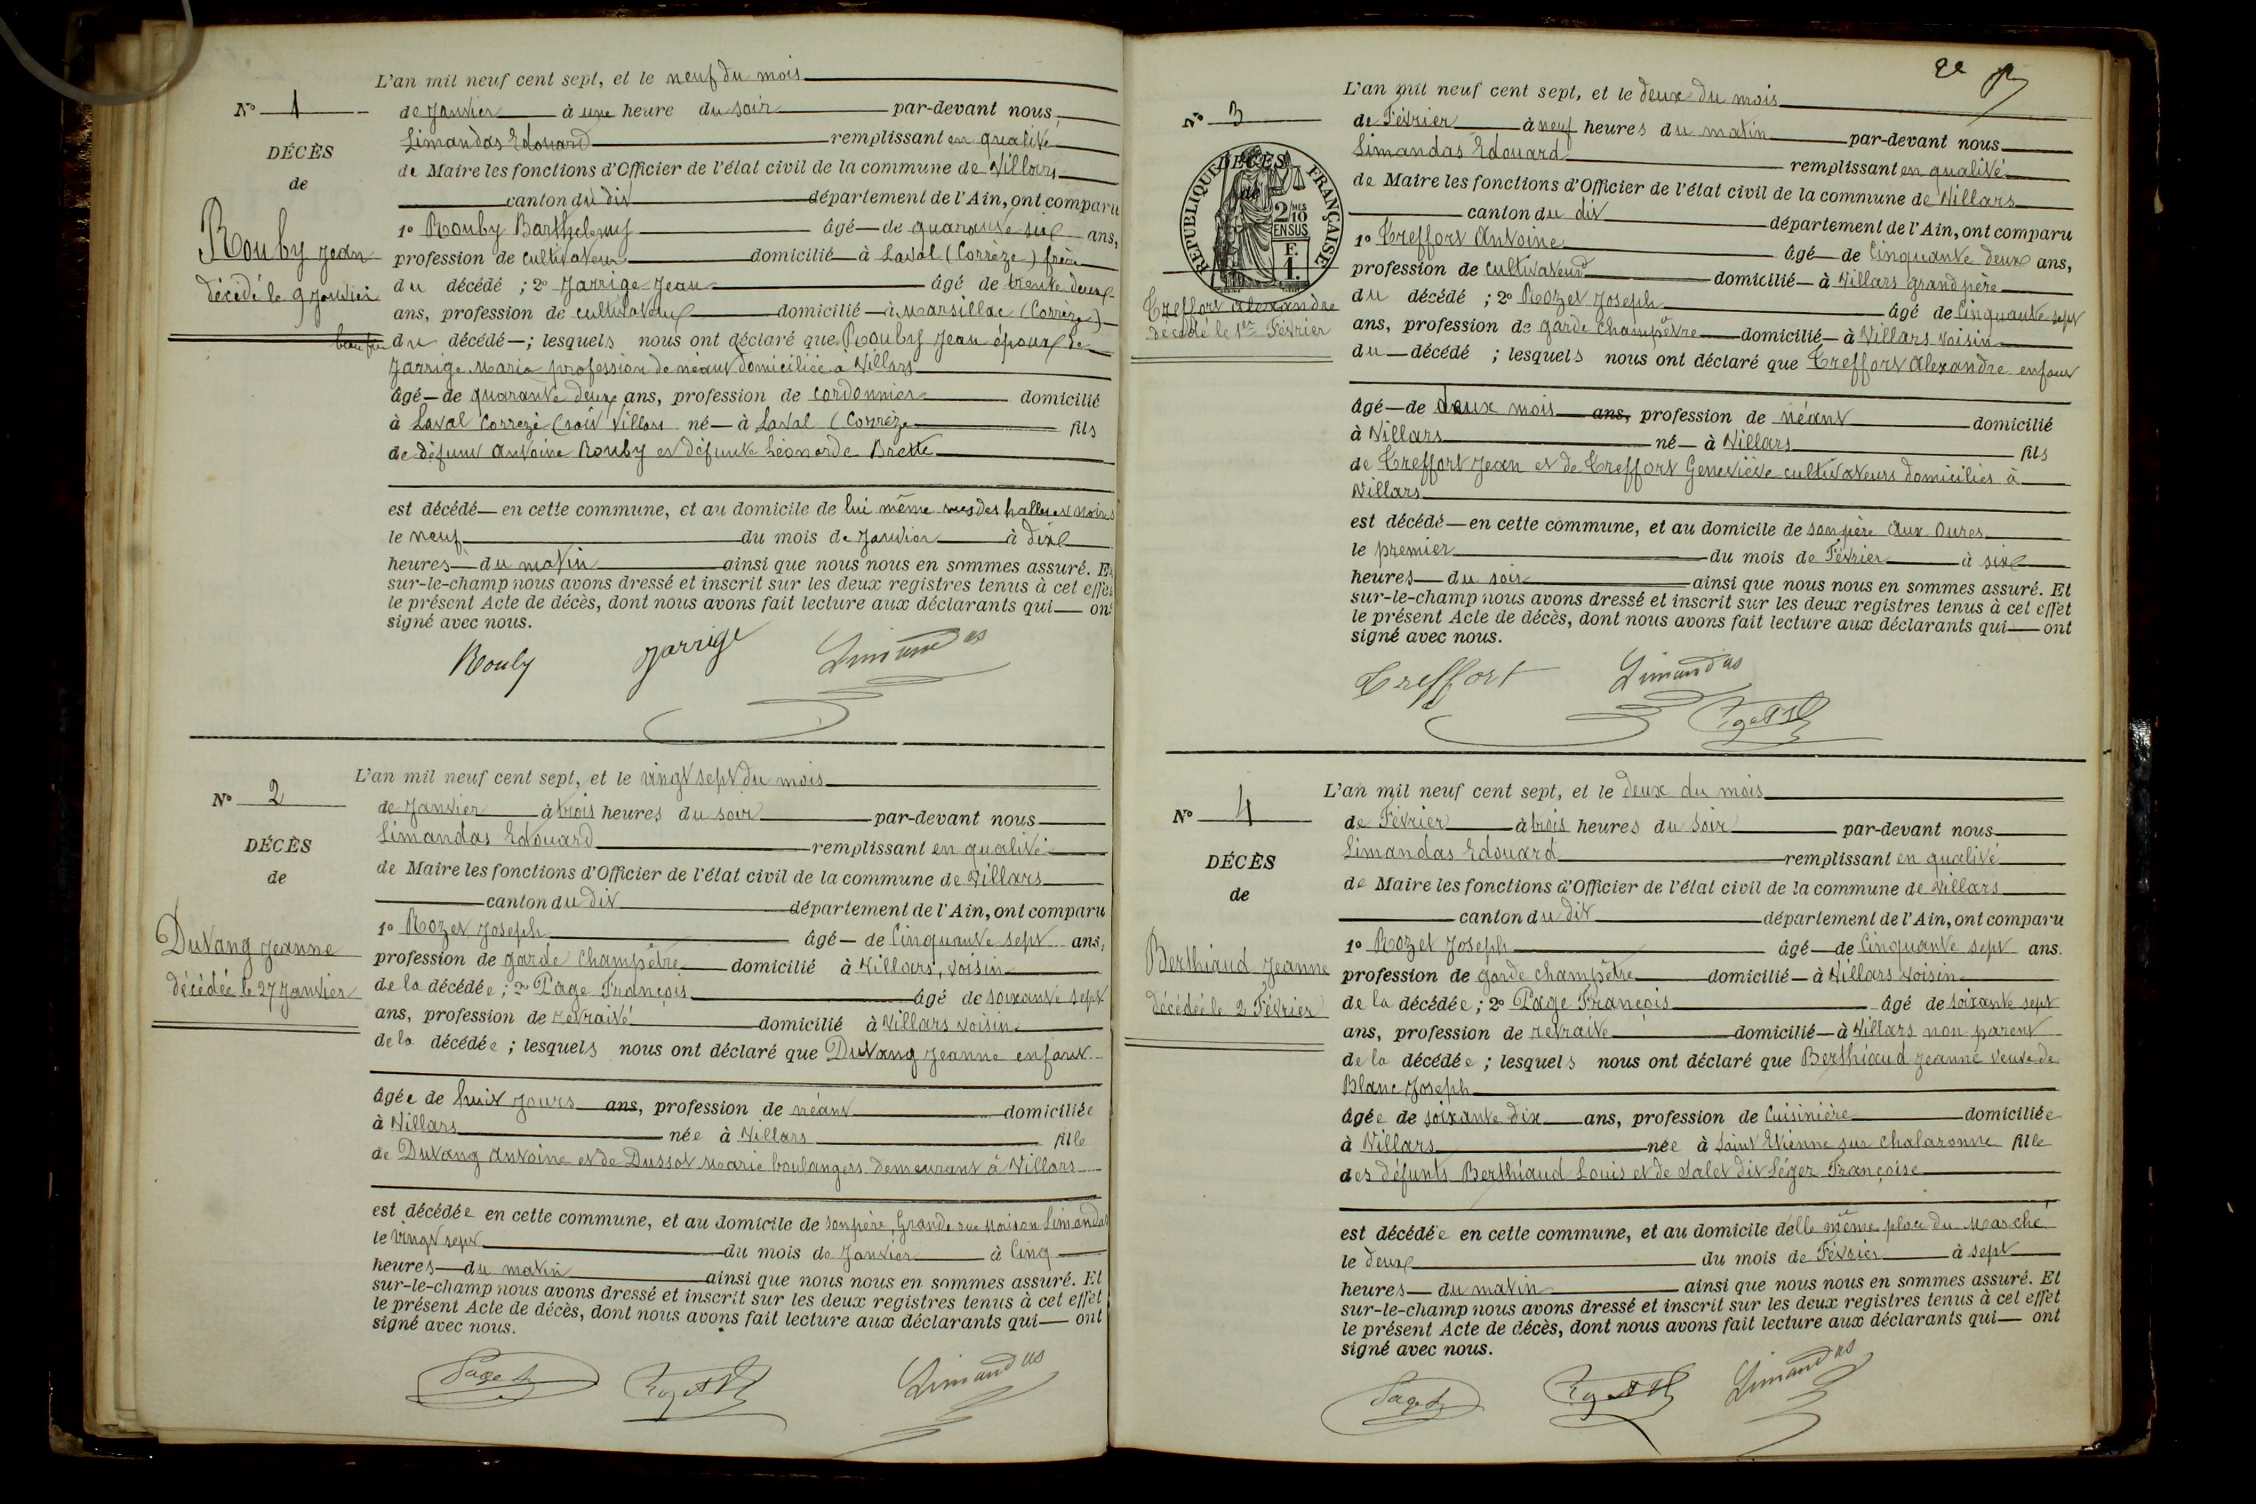 L'an mil neuf cent sept, et le neuf du mois
N° 1
de Janvier à une heure du soir par-devant nous,
Limandas Edouard remplissant en qualité
DÉCÈS
de Maire les fonctions d'Officier de l'état civil de la commune de Villars
de
canton du dit département de l'Ain, ont comparu
1° Rouby Barthelemy âgé de quarante six ans,
Rouby Jean
profession de cultivateur domicilié à Laval (Corrèze) frère
décédé le 9 Janvier
du décédé ; 2° Jarrige Jean âgé de trente deux
ans, profession de cultivateur domicilié à Marsillac (Corrèze)
beau frère du décédé ; lesquels nous ont déclaré que Rouby Jean époux de
Jarrige Maria profession de néant domiciliée à Villars
âgé de quarante deux ans, profession de cordonnier domicilié
à Laval Corrèze Villars né à Laval (Corrèze fils
de défunt Antoine Rouby et défunte Léonarde Brette
est décédé en cette commune, et au domicile de lui même rue des halles
le neuf du mois de Janvier à dix
heures du matin ainsi que nous nous en sommes assuré. Et
sur-le-champ nous avons dressé et inscrit sur les deux registres tenus à cet effet
le présent Acte de décès, dont nous avons fait lecture aux déclarants qui ont
signé avec nous.
Rouby Jarrige Limandas
L'an mil neuf cent sept, et le vingt sept du mois
N° 2
de Janvier à trois heures du soir par-devant nous
Limandas Edouard remplissant en qualité
DÉCÈS
de Maire les fonctions d'Officier de l'état civil de la commune de Villars
de
canton du dit département de l'Ain, ont comparu
1° Rozet Joseph âgé de Cinquante sept ans,
Duvang Jeanne
profession de garde champêtre domicilié à Villars, voisin
décédée le 27 Janvier
de la décédée ; 2° Page François âgé de soixante sept
ans, profession de retraité domicilié à Villars voisin
de la décédée ; lesquels nous ont déclaré que Duvang Jeanne enfant
âgée de huit jours ans, profession de néant domiciliée
à Villars née à Villars fille
de Duvang Antoine et de Dussot Marie boulangers demeurant à Villars
est décédée en cette commune, et au domicile de son père, Grande rue Maison Limandas
le vingt sept du mois de Janvier à Cinq
heures du matin ainsi que nous nous en sommes assuré. Et
sur-le-champ nous avons dressé et inscrit sur les deux registres tenus à cet effet
le présent Acte de décès, dont nous avons fait lecture aux déclarants qui ont
signé avec nous.
Page Rozet Limandas
L'an mil neuf cent sept, et le deux du mois
N° 3
de Février à neuf heures du matin par-devant nous
Limandas Edouard remplissant en qualité
DÉCÈS
de
RÉPUBLIQUE FRANÇAISE
2/10 MES
EN SUS
F.
1.
de Maire les fonctions d'Officier de l'état civil de la commune de Villars
canton du dit département de l'Ain, ont comparu
1° Treffort Antoine âgé de Cinquante deux ans,
profession de cultivateur domicilié à Villars grand père
Treffort Alexandre
décédé le 1er Février
du décédé ; 2° Rozet Joseph âgé de Cinquante sept
ans, profession de garde champêtre domicilié à Villars voisin
du décédé ; lesquels nous ont déclaré que Treffort Alexandre enfant
âgé de deux mois ans, profession de néant domicilié
à Villars né à Villars fils
de Treffort Jean et de Treffort Geneviève cultivateurs domiciliés à
Villars
est décédé en cette commune, et au domicile de son père aux Oures
le premier du mois de Février à six
heures du soir ainsi que nous nous en sommes assuré. Et
sur-le-champ nous avons dressé et inscrit sur les deux registres tenus à cet effet
le présent Acte de décès, dont nous avons fait lecture aux déclarants qui ont
signé avec nous.
Treffort Limandas
Rozet
L'an mil neuf cent sept, et le deux du mois
N° 4
de Février à trois heures du soir par-devant nous
Limandas Edouard remplissant en qualité
DÉCÈS
de Maire les fonctions d'Officier de l'état civil de la commune de Villars
de
canton du dit département de l'Ain, ont comparu
1° Rozet Joseph âgé de Cinquante sept ans.
Berthiaud Jeanne
profession de garde champêtre domicilié à Villars voisin
décédée le 2 Février
de la décédée ; 2° Page François âgé de soixante sept
ans, profession de retraité domicilié à Villars non parent
de la décédée ; lesquels nous ont déclaré que Berthiaud Jeanne veuve de
Blanc Joseph
âgée de soixante dix ans, profession de Cuisinière domiciliée
à Villars née à Saint Etienne sur Chalaronne fille
des défunts Berthiaud Louis et de Salet dit Léger Françoise
est décédée en cette commune, et au domicile d'elle même place du Marché
le deux du mois de Février à sept
heures du matin ainsi que nous nous en sommes assuré. Et
sur-le-champ nous avons dressé et inscrit sur les deux registres tenus à cet effet
le présent Acte de décès, dont nous avons fait lecture aux déclarants qui ont
signé avec nous.
Page Rozet Limandas